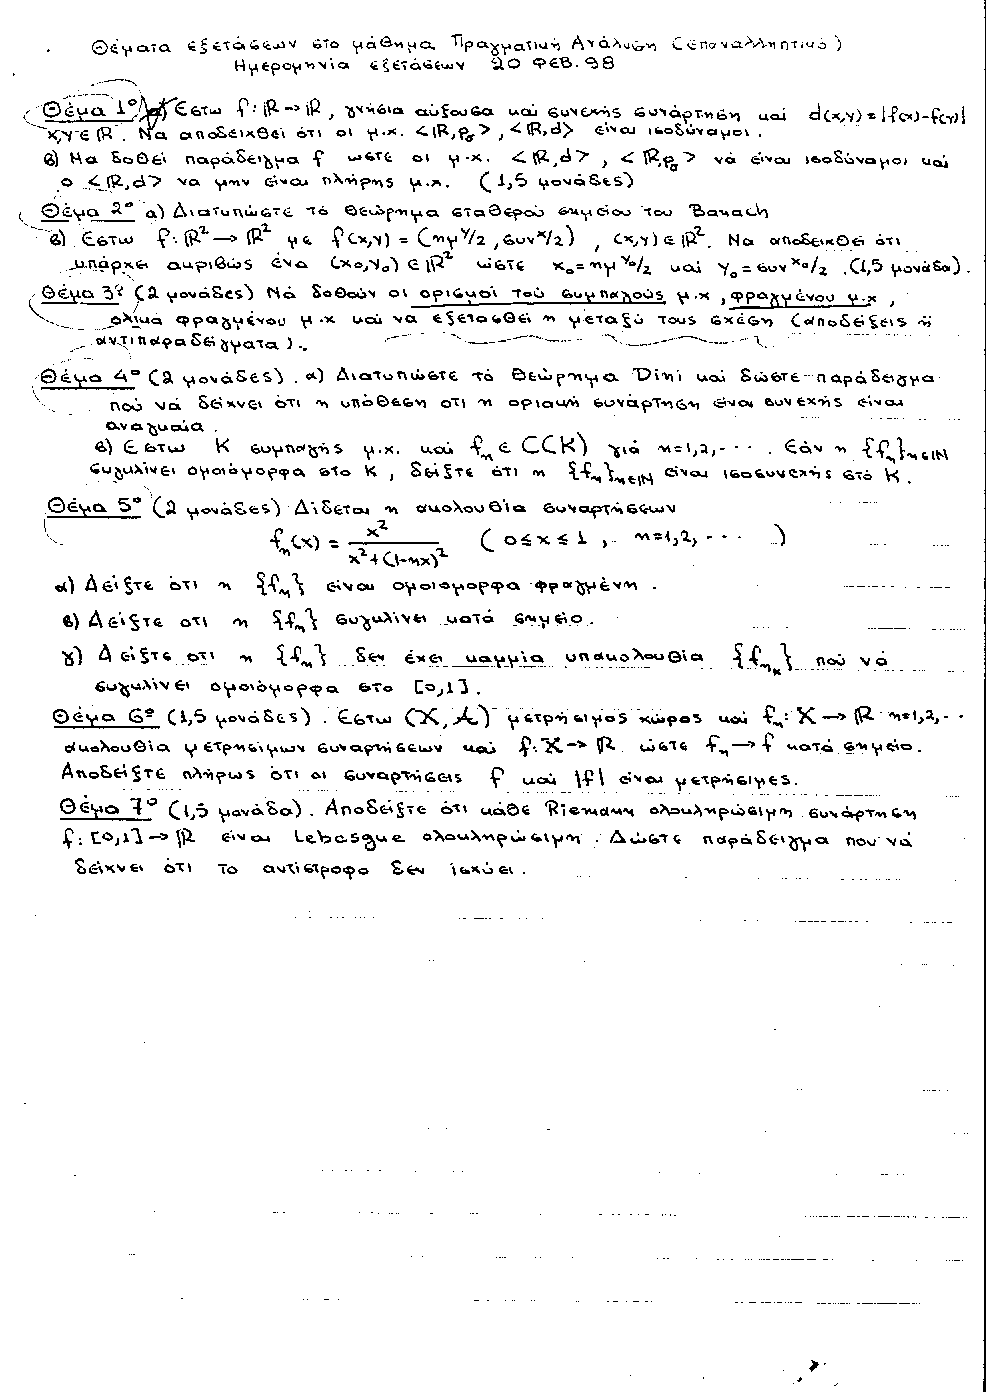 Θέματα εξετάσεων στο μάθημα Πραγματική Ανάλυση (επαναληπτικό)
Ημερομηνία εξετάσεων 20 ΦΕΒ. 98
Θέμα 1º α) Εστω f: ℝ → ℝ, γνήσια αύξουσα και συνεχής συνάρτηση και d(x,y)=|f(x)-f(y)|
x,y ∈ ℝ. Να αποδειχθεί ότι οι μ.χ. <ℝ,ρσ>, <ℝ,d> είναι ισοδύναμοι.
β) Να δοθεί παράδειγμα f ωστε οι μ.χ. <ℝ,d>, <ℝ,ρσ> νά είναι ισοδύναμοι και
ο <ℝ,d> να μην είναι πλήρης μ.χ. (1,5 μονάδες)
Θέμα 2º α) Διατυπώστε τό Θεώρημα σταθερού σημείου του Banach
β) Εστω f: ℝ² → ℝ² με f(x,y) = (ημ y/2, συν x/2), (x,y) ∈ ℝ². Να αποδειχθεί ότι
υπάρχει ακριβώς ένα (x₀,y₀) ∈ ℝ² ώστε x₀=ημ y₀/2 καί y₀=συν x₀/2. (1,5 μονάδα).
Θέμα 3º (2 μονάδες) Νά δοθούν οι ορισμοί τού συμπαγούς μ.χ, φραγμένου μ.χ,
ολικά φραγμένου μ.χ καί να εξετασθεί η μεταξύ τους σχέση (αποδείξεις ή
αντιπαραδείγματα).
Θέμα 4º (2 μονάδες). α) Διατυπώστε τό Θεώρημα Dini καί δώστε παράδειγμα
πού νά δείχνει ότι η υπόθεση οτι η οριακή συνάρτηση είναι συνεχής είναι
αναγκαία.
β) Εστω K συμπαγής μ.χ. καί fₙ ∈ C(K) γιά n=1,2,··· Εάν η {fₙ}n∈ℕ
συγκλίνει ομοιόμορφα στο K, δείξτε ότι η {fₙ}n∈ℕ είναι ισοσυνεχής στό K.
Θέμα 5º (2 μονάδες) Δίδεται η ακολουθία συναρτήσεων
fₙ(x) = x²/(x²+(1-nx)²) (0≤x≤1, n=1,2,··· )
α) Δείξτε ότι η {fₙ} είναι ομοιόμορφα φραγμένη.
β) Δείξτε οτι η {fₙ} συγκλίνει κατά σημείο.
γ) Δείξτε οτι η {fₙ} δεν έχει καμμία υπακολουθία {fₙₖ} πού νά
συγκλίνει ομοιόμορφα στο [0,1].
Θέμα 6º (1,5 μονάδες). Εστω (X, 𝒜) μετρήσιμος χώρος καί fₙ: X → ℝ n=1,2,··
ακολουθία μετρησίμων συναρτήσεων καί f: X → ℝ ώστε fₙ → f κατά σημείο.
Αποδείξτε πλήρως ότι οι συναρτήσεις f καί |f| είναι μετρήσιμες.
Θέμα 7º (1,5 μονάδα). Αποδείξτε ότι κάθε Riemann ολοκληρώσιμη συνάρτηση
f: [0,1] → ℝ είναι Lebesgue ολοκληρώσιμη. Δώστε παράδειγμα που νά
δείχνει ότι το αντίστροφο δεν ισχύει.